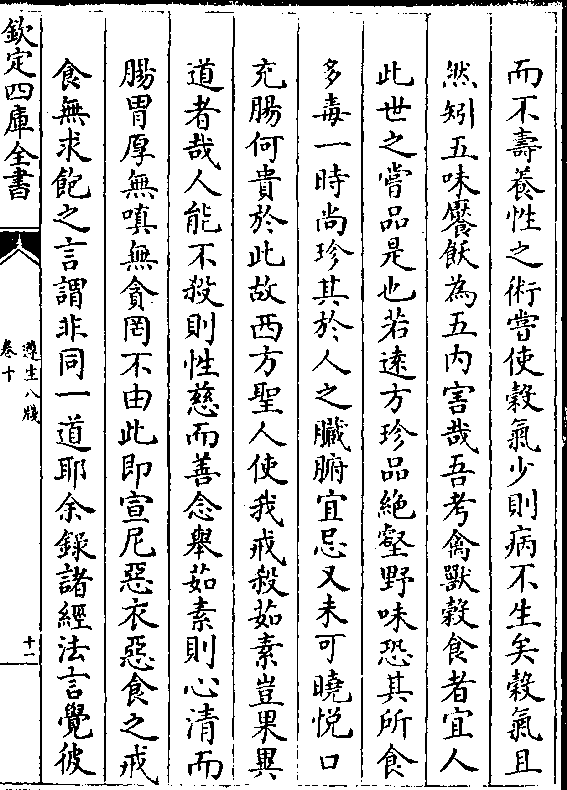 而不壽養性之術嘗使穀氣少則病不生矣穀氣且
然矧五味饜飫為五内害哉吾考禽獸穀食者宜人
此世之嘗品是也若遠方珍品絶壑野味恐其所食
多毒一時尚珍其於人之臟腑宜忌又未可曉悦口
充腸何貴於此故西方聖人使我戒殺茹素豈果異
道者哉人能不殺則性慈而善念舉茹素則心清而
腸胃厚無嗔無貪罔不由此即宣尼惡衣惡食之戒
食無求飽之言謂非同一道耶余錄諸經法言覺彼
欽定四庫全書
遵生八牋
卷十
十一